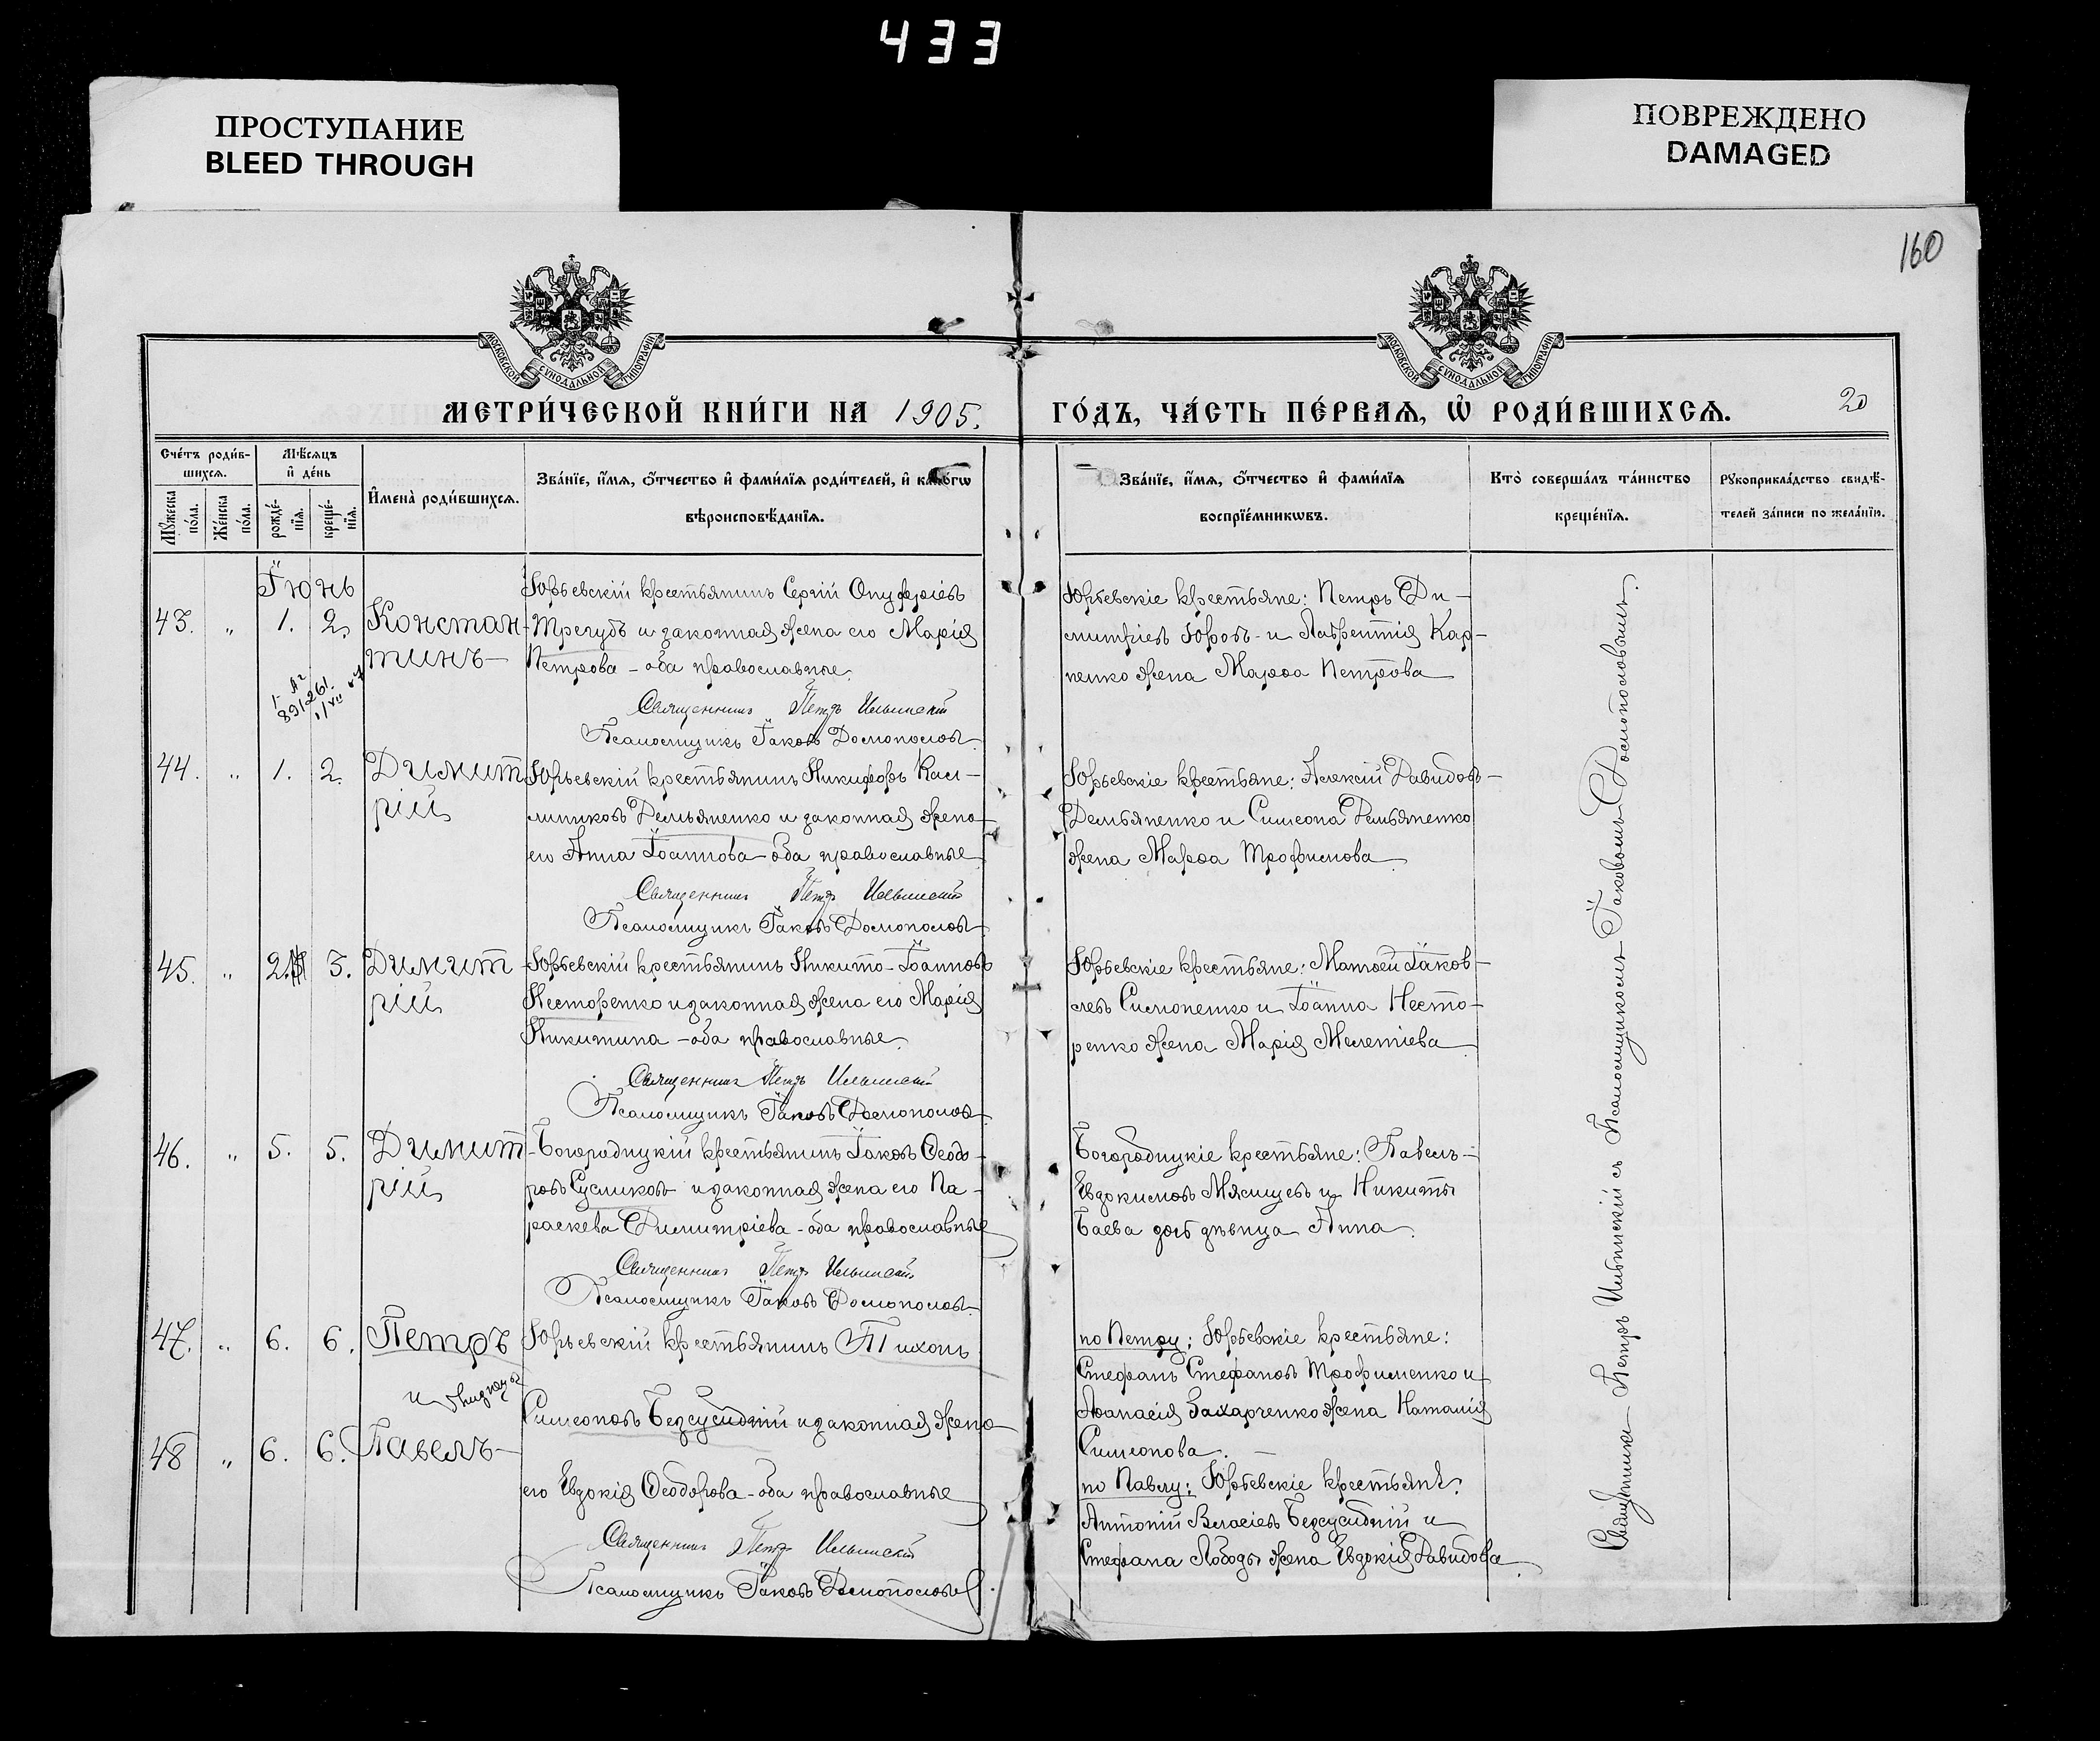 433
ПРОСТУПАНИЕ
BLEED THROUGH
ПОВРЕЖДЕНО
DAMAGED
160
МОСКОВСКОЙ СѴНОДАЛЬНОЙ ТИПОГРАФІИ
МОСКОВСКОЙ СѴНОДАЛЬНОЙ ТИПОГРАФІИ
МЕТРИ́ЧЕСКОЙ КНИ́ГИ НА 1905.
ГО́ДЪ, ЧА́СТЬ ПЕ́РВАѦ, Ѽ РОДИ́ВШИХСѦ.
20
Сче́тъ роди́в-
шихсѧ.
Мꙋ́жеска по́ла.
Же́нска по́ла.
Мѣ́сѧцъ
и҆ де́нь
рожде́-
нїѧ.
креще́-
нїѧ.
И҆мена̀ роди́вшихсѧ.
Зва́нїе, и҆́мѧ, ѻ҆́тчество и҆ фами́лїѧ роди́телей, и҆ како́гѡ
вѣроисповѣ́данїѧ.
Зва́нїе, и҆́мѧ, ѻ҆́тчество и҆ фами́лїѧ
воспрїе́мникѡвъ.
Кто̀ соверша́лъ та́инство
креще́нїѧ.
Рꙋкоприкла́дство свидѣ́-
телей за́писи по жела́нїю.
Іюнь
43. „ 1. 2. Констан-
тинъ
Юрьевскій крестьянинъ Сергій Онуфріевъ
Трегубъ и законная жена его Марія
Петрова - оба православные.
Священникъ Петръ Ильинскій
Псаломщикъ Іаковъ
Юрьевскіе крестьяне: Петръ Ди-
митріевъ и Лаврентія Кар-
пенко жена Марѳа Петрова
44. „ 1. 2. Димит
рій
Юрьевскій крестьянинъ Никифоръ Кал-
линиковъ Демьяненко и законная жена
его Анна Іоаннова - оба православные
Священникъ Петръ Ильинскій
Псаломщикъ Іаковъ
Юрьевскіе крестьяне: Алексій Давидовъ
Демьяненко и Симеона Демьяненко
жена Марѳа Трофимова
45. „ 2. 3. Димит
рій
Юрьевскій крестьянинъ Никита Іоанновъ
Несторенко и законная жена его Марія
Никитина - оба православные.
Священникъ Петръ Ильинскій
Псаломщикъ Іаковъ
Юрьевскіе крестьяне: Матѳей Іаков-
левъ Симоненко и Іоанна Несто-
ренко жена Марія Мелетіева
46. „ 5. 5. Димит
рій
Богородицкій крестьянинъ Іаковъ Ѳеодо-
ровъ Сусликовъ и законная жена его Па-
раскева Димитріева - оба православные
Священникъ Петръ Ильинскій
Псаломщикъ Іаковъ
Богородицкіе крестьяне: Павелъ
Евдокимовъ Мясищевъ и Никиты
Баева дочь дѣвица Анна.
47. „ 6. 6. Петръ
и близнецы
48 „ 6. 6. Павелъ
Юрьевскій крестьянинъ Тихонъ
Симеоновъ Безсусѣдній и законная жена
его Евдокія Ѳеодорова - оба православные
Священникъ Петръ Ильинскій
Псаломщикъ Іаковъ
по Петру: Юрьевскіе крестьяне:
Стефанъ Стефановъ Трофименко и
Аѳанасія Захарченко жена Наталія
Симеонова.
по Павлу: Юрьевскіе крестьяне.
Антоній Власіевъ Безсусѣдній и
Стефана Лободы жена Евдокія Давидова.
Священникъ Петръ Ильинскій съ Псаломщикомъ Іаковомъ